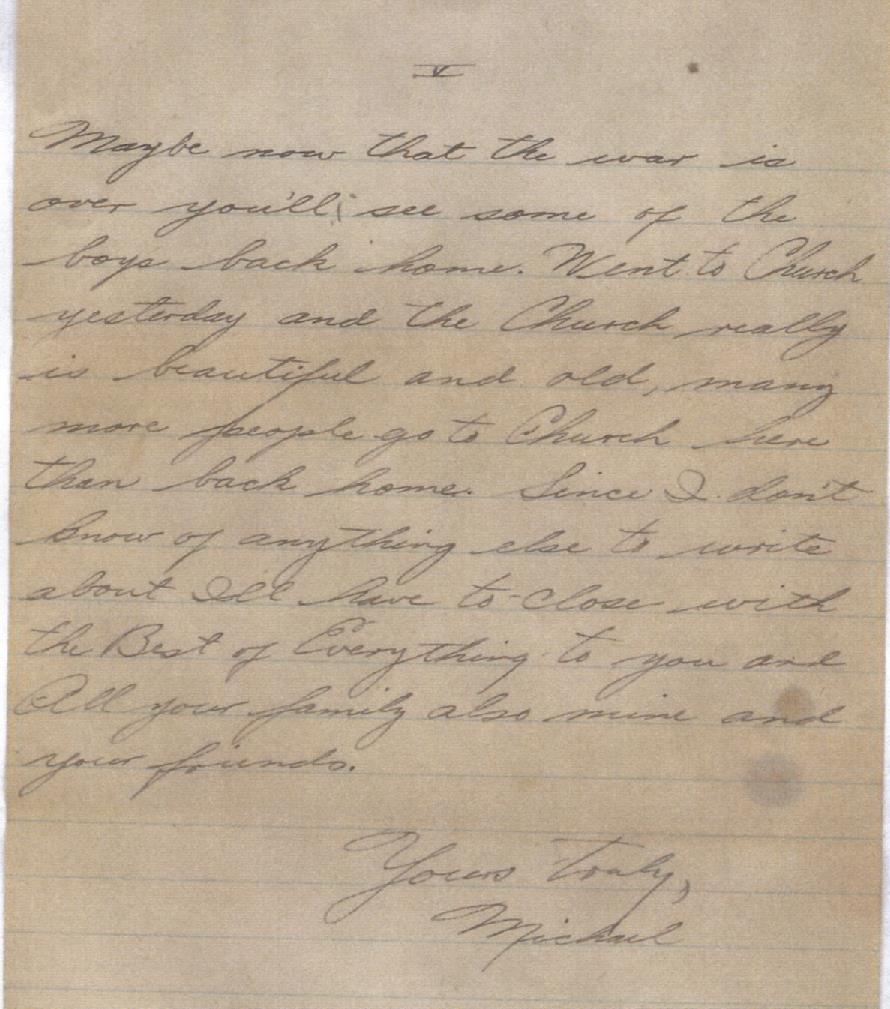 V
Maybe now that the war is
over you'll see some of the
boys back home. Went to Church
yesterday and the Church really
is beautiful and old, many
more people go to Church here
than back home. Since I don't
know of anything else to write
about I'll have to close with
the Best of Everything to you and
All your family also mine and
your friends.
Yours truly,
Michael